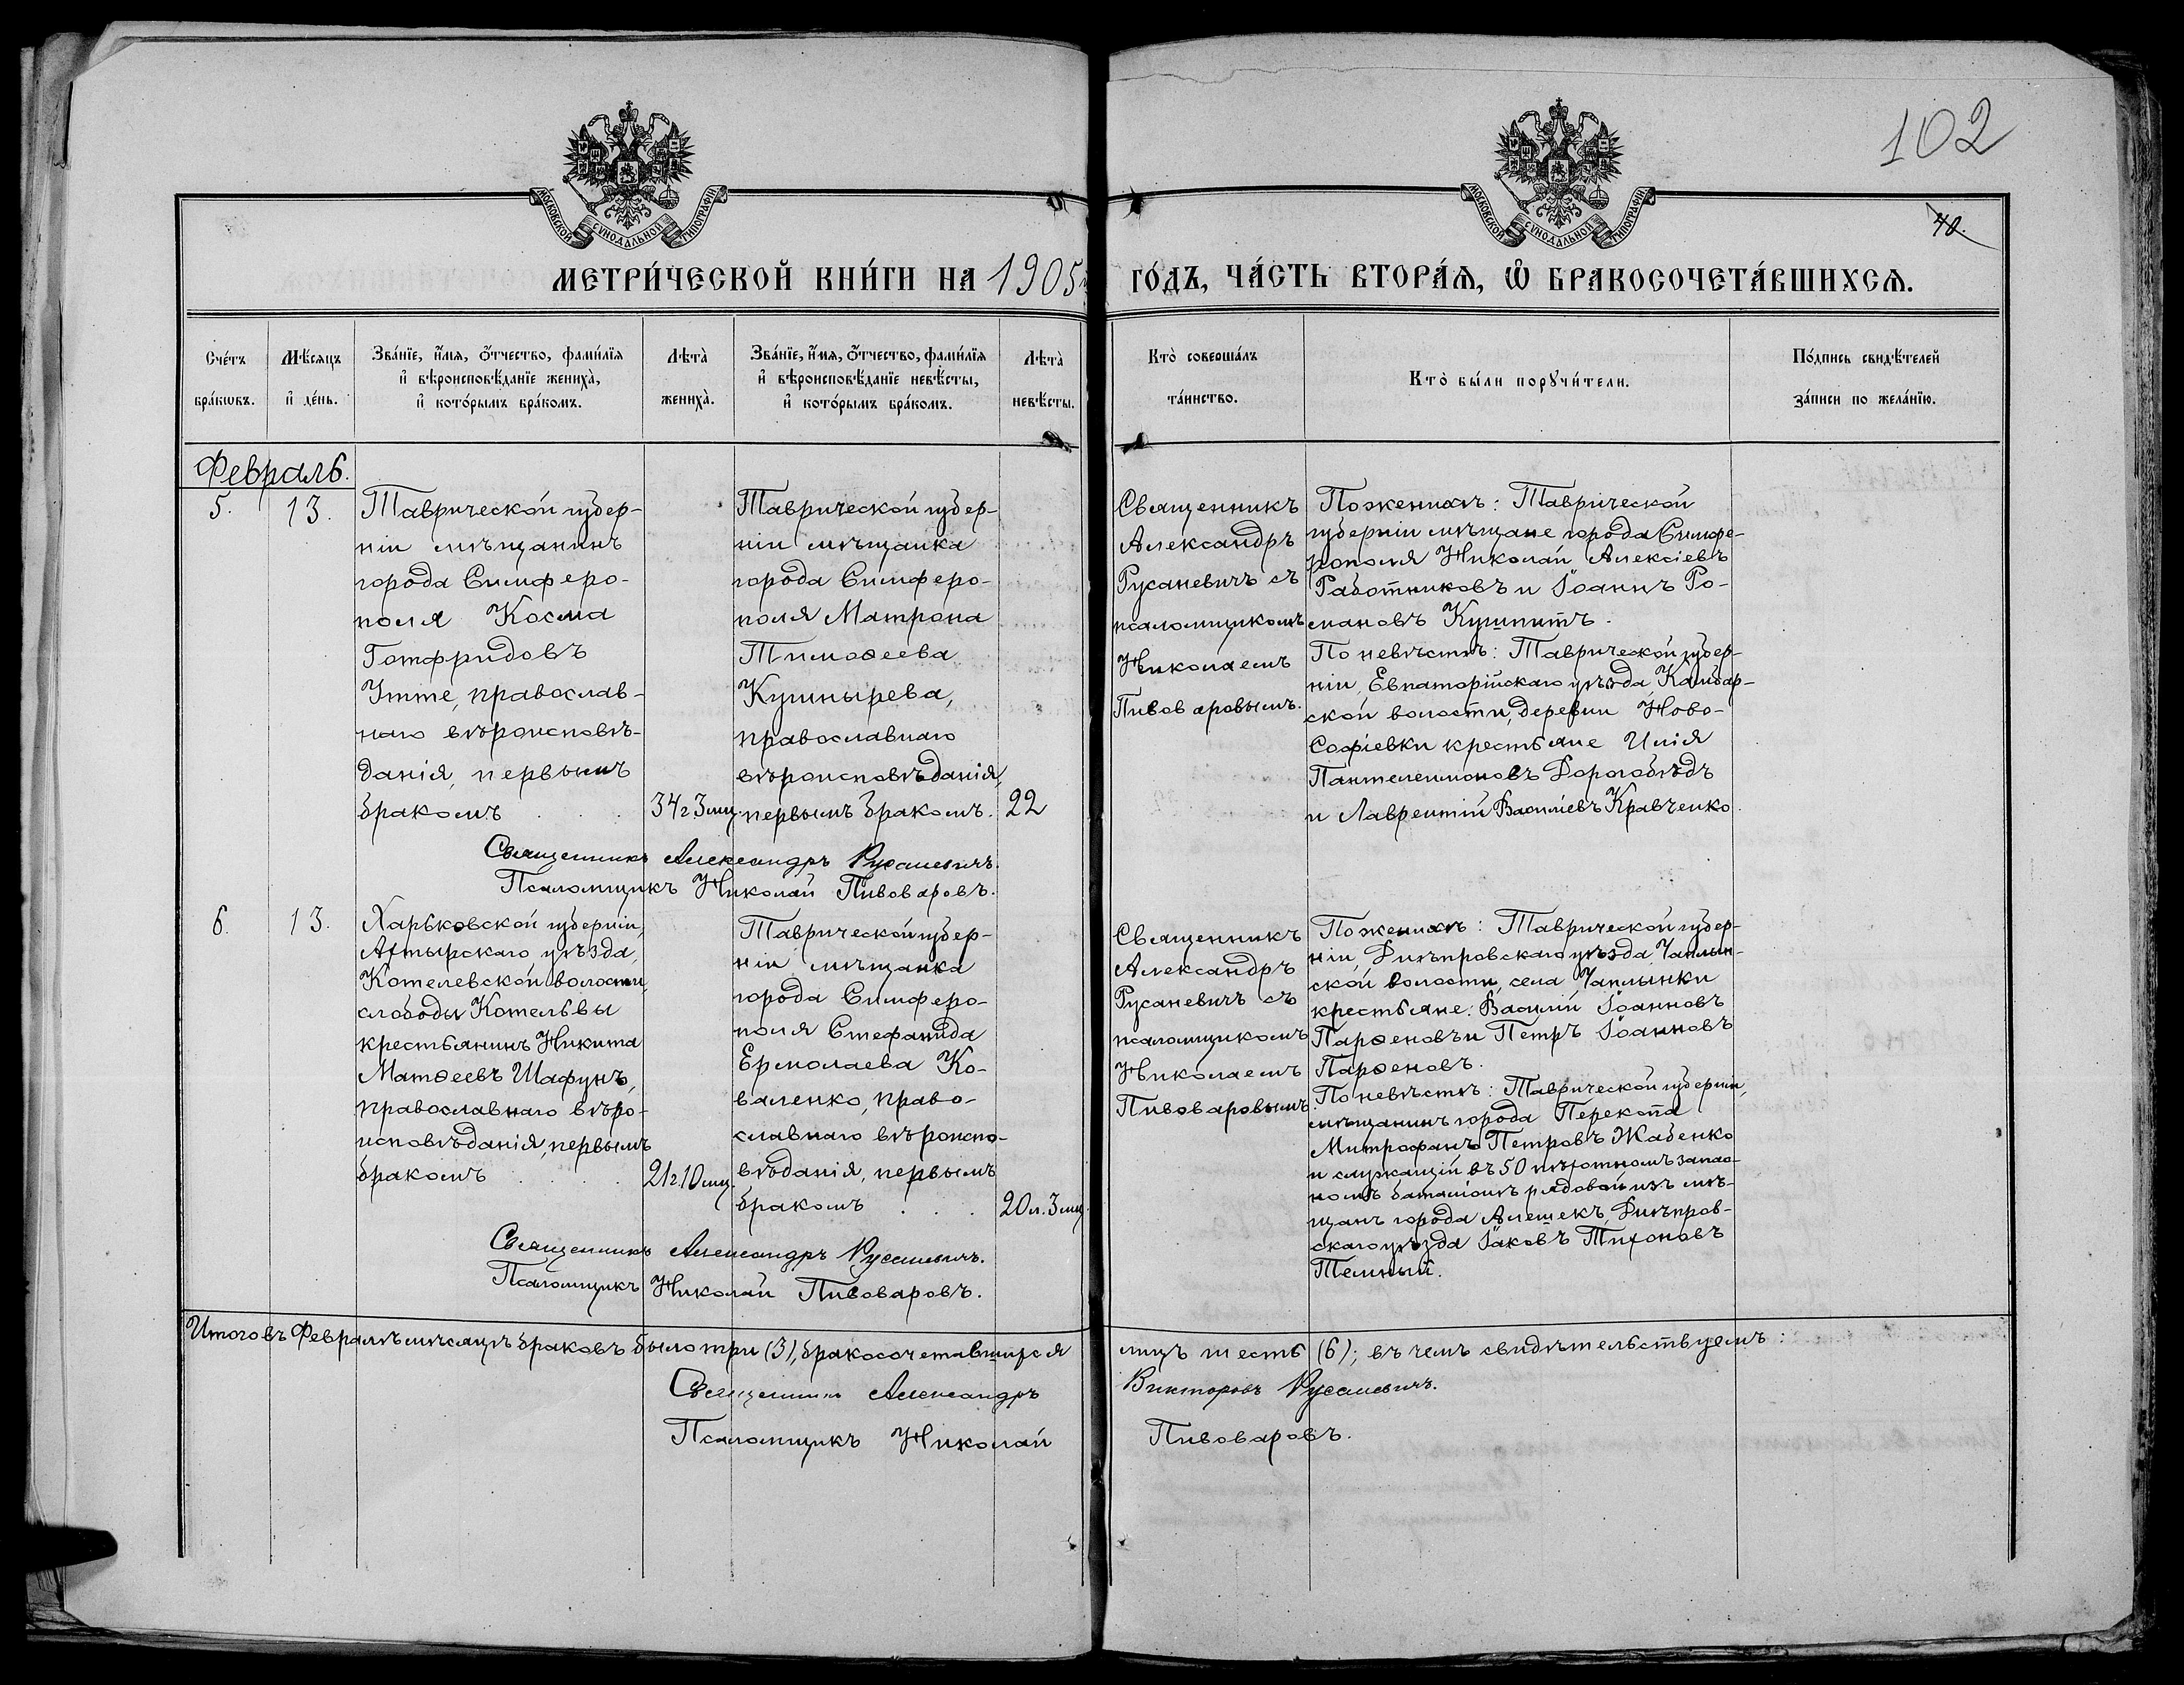 102
40.
МОСКОВСКОЙ СѴНОДАЛЬНОЙ ТИПОГРАФІИ
МОСКОВСКОЙ СѴНОДАЛЬНОЙ ТИПОГРАФІИ
МЕТРИ́ЧЕСКОЙ КНИ́ГИ НА 1905 ГО́ДЪ, ЧА́СТЬ ВТОРА́Ѧ, Ѡ҆ БРАКОСОЧЕТА́ВШИХСѦ.
Сче́тъ
бра́кѡвъ.
Мѣ́сѧцъ
и҆ де́нь.
Зва́нїе, и҆́мѧ, ѻ҆́тчество, фами́лїѧ
и҆ вѣроисповѣ́данїе жениха̀,
и҆ кото́рымъ бра́комъ.
Лѣта̀
жениха̀.
Зва́нїе, и҆́мѧ, ѻ҆́тчество, фами́лїѧ
и҆ вѣроисповѣ́данїе невѣ́сты,
и҆ кото́рымъ бра́комъ.
Лѣта̀
невѣ́сты.
Кто̀ соверша́лъ
та́инство.
Кто̀ бы́ли порꙋчи́тели.
По́дпись свидѣ́телей
за́писи по жела́нїю.
Февраль.
5.
13.
Таврической губер-
ніи мѣщанинъ
города Симферо-
поля Косма
Готфридовъ
Утте, православ-
наго вѣроисповѣ-
данія, первымъ
бракомъ . . .
34 г 3 мц.
Таврической губер-
ніи мѣщанка
города Симферо-
поля Матрона
Тимоѳеева
Кушнырева,
православнаго
вѣроисповѣданія,
первымъ бракомъ.
22
Священникъ
Александръ
Русаневичъ съ
псаломщикомъ
Николаемъ
Пивоваровымъ.
По женихѣ: Таврической
губерніи мѣщане города Симфе-
рополя Николай Алексіевъ
Работниковъ и Іоаннъ Ро-
мановъ Кушнитъ.
По невѣстѣ: Таврической губер-
ніи, Евпаторійскаго уѣзда, Камбар-
ской волости, деревни Ново-
Софіевки крестьяне Илія
Пантелеимоновъ Дорогобѣдъ
и Лаврентій Василіевъ Кравченко.
Священникъ Александръ Русаневичъ.
Псаломщикъ Николай Пивоваровъ.
6.
13.
Харьковской губерніи,
Ахтырскаго уѣзда,
Котелевской волости,
слободы Котельвы
крестьянинъ Никита
Матѳеевъ Шафунъ,
православнаго вѣро-
исповѣданія, первымъ
бракомъ . . . .
21 г. 10 мц.
Таврической губер-
ніи мѣщанка
города Симферо-
поля Стефанида
Ермолаева Ко-
валенко, право-
славнаго вѣроиспо-
вѣданія, первымъ
бракомъ . . .
20 л. 3 мц.
Священникъ
Александръ
Русаневичъ съ
псаломщикомъ
Николаемъ
Пивоваровымъ.
По женихѣ: Таврической губер-
ніи, Днѣпровскаго уѣзда, Чаплын-
ской волости, села Чаплынки
крестьяне: Василій Іоанновъ
Парѳеновъ и Петръ Іоанновъ
Парѳеновъ.
По невѣстѣ: Таврической губерніи,
мѣщанинъ города Перекопа
Митрофанъ Петровъ Жабенко
и служащій въ 50 пѣхотномъ запас-
номъ баталіонѣ рядовой изъ мѣ-
щанъ города Алешекъ, Днѣпров-
скаго уѣзда Іаковъ Тихоновъ
Темный.
Священникъ Александръ Русаневичъ.
Псаломщикъ Николай Пивоваровъ.
Итого въ Февралѣ мѣсяцѣ браковъ было три (3), бракосочетавшихся лицъ шесть (6); въ чемъ свидѣтельствуемъ:
Священникъ Александръ Викторовъ Русаневичъ.
Псаломщикъ Николай Пивоваровъ.